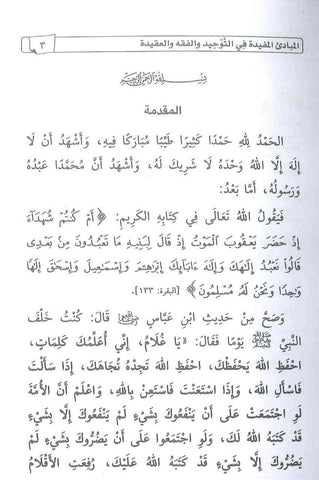 المبادئ المفيدة في التَّوحيد والفقه والعقيدة
٣
بِسْمِ اللَّهِ الرَّحْمَنِ الرَّحِيمِ
المقدمة
الحَمْدُ لِلَّهِ حَمْدًا كَثِيرًا طَيِّبًا مُبَارَكًا فِيهِ، وَأَشْهَدُ أَنْ لَا
إِلَهَ إِلَّا اللهُ وَحْدَهُ لَا شَرِيكَ لَهُ، وَأَشْهَدُ أَنَّ مُحَمَّدًا عَبْدُهُ
وَرَسُولُهُ، أَمَّا بَعْدُ:
فَيَقُولُ اللهُ تَعَالَى فِي كِتَابِهِ الكَرِيمِ: ﴿أَمْ كُنتُمْ شُهَدَآءَ
إِذْ حَضَرَ يَعْقُوبَ ٱلْمَوْتُ إِذْ قَالَ لِبَنِيهِ مَا تَعْبُدُونَ مِنۢ بَعْدِى
قَالُوا۟ نَعْبُدُ إِلَٰهَكَ وَإِلَٰهَ ءَابَآئِكَ إِبْرَٰهِۦمَ وَإِسْمَٰعِيلَ وَإِسْحَٰقَ إِلَٰهًا
وَٰحِدًا وَنَحْنُ لَهُۥ مُسْلِمُونَ﴾ [البقرة: ١٣٣].
وَصَحَّ مِنْ حَدِيثِ ابْنِ عَبَّاسٍ قَالَ: كُنْتُ خَلْفَ
النَّبِيِّ ﷺ يَوْمًا فَقَالَ: «يَا غُلَامُ، إِنِّي أُعَلِّمُكَ كَلِمَاتٍ،
احْفَظِ اللهَ يَحْفَظْكَ، احْفَظِ اللهَ تَجِدْهُ تُجَاهَكَ، إِذَا سَأَلْتَ
فَاسْأَلِ اللهَ، وَإِذَا اسْتَعَنْتَ فَاسْتَعِنْ بِاللهِ، وَاعْلَمْ أَنَّ الأُمَّةَ
لَوِ اجْتَمَعَتْ عَلَى أَنْ يَنْفَعُوكَ بِشَيْءٍ لَمْ يَنْفَعُوكَ إِلَّا بِشَيْءٍ
قَدْ كَتَبَهُ اللهُ لَكَ، وَلَوِ اجْتَمَعُوا عَلَى أَنْ يَضُرُّوكَ بِشَيْءٍ لَمْ
يَضُرُّوكَ إِلَّا بِشَيْءٍ قَدْ كَتَبَهُ اللهُ عَلَيْكَ، رُفِعَتِ الأَقْلَامُ